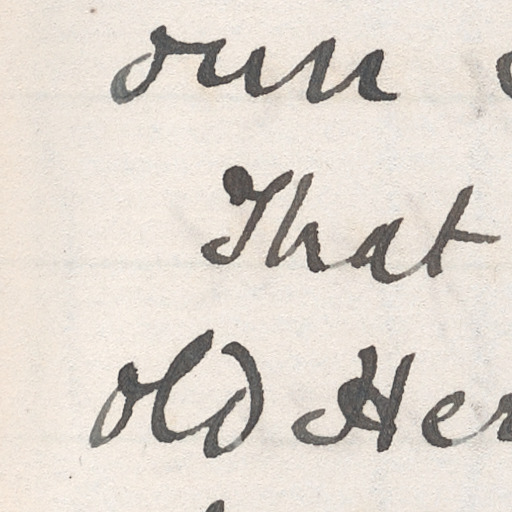 own
That
old Her